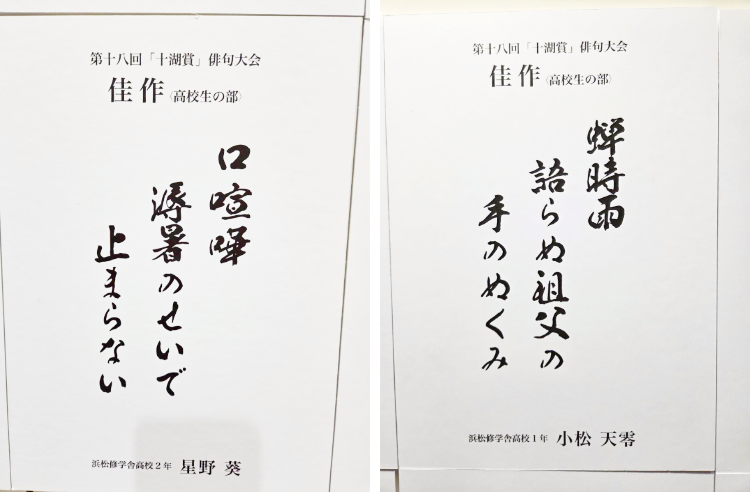 第十八回「十湖賞」俳句大会
佳作〈高校生の部〉
口喧嘩
溽暑のせいで
止まらない
浜松修学舎高校2年 星野 葵
第十八回「十湖賞」俳句大会
佳作〈高校生の部〉
蟬時雨
語らぬ祖父の
手のぬくみ
浜松修学舎高校1年 小松 天零